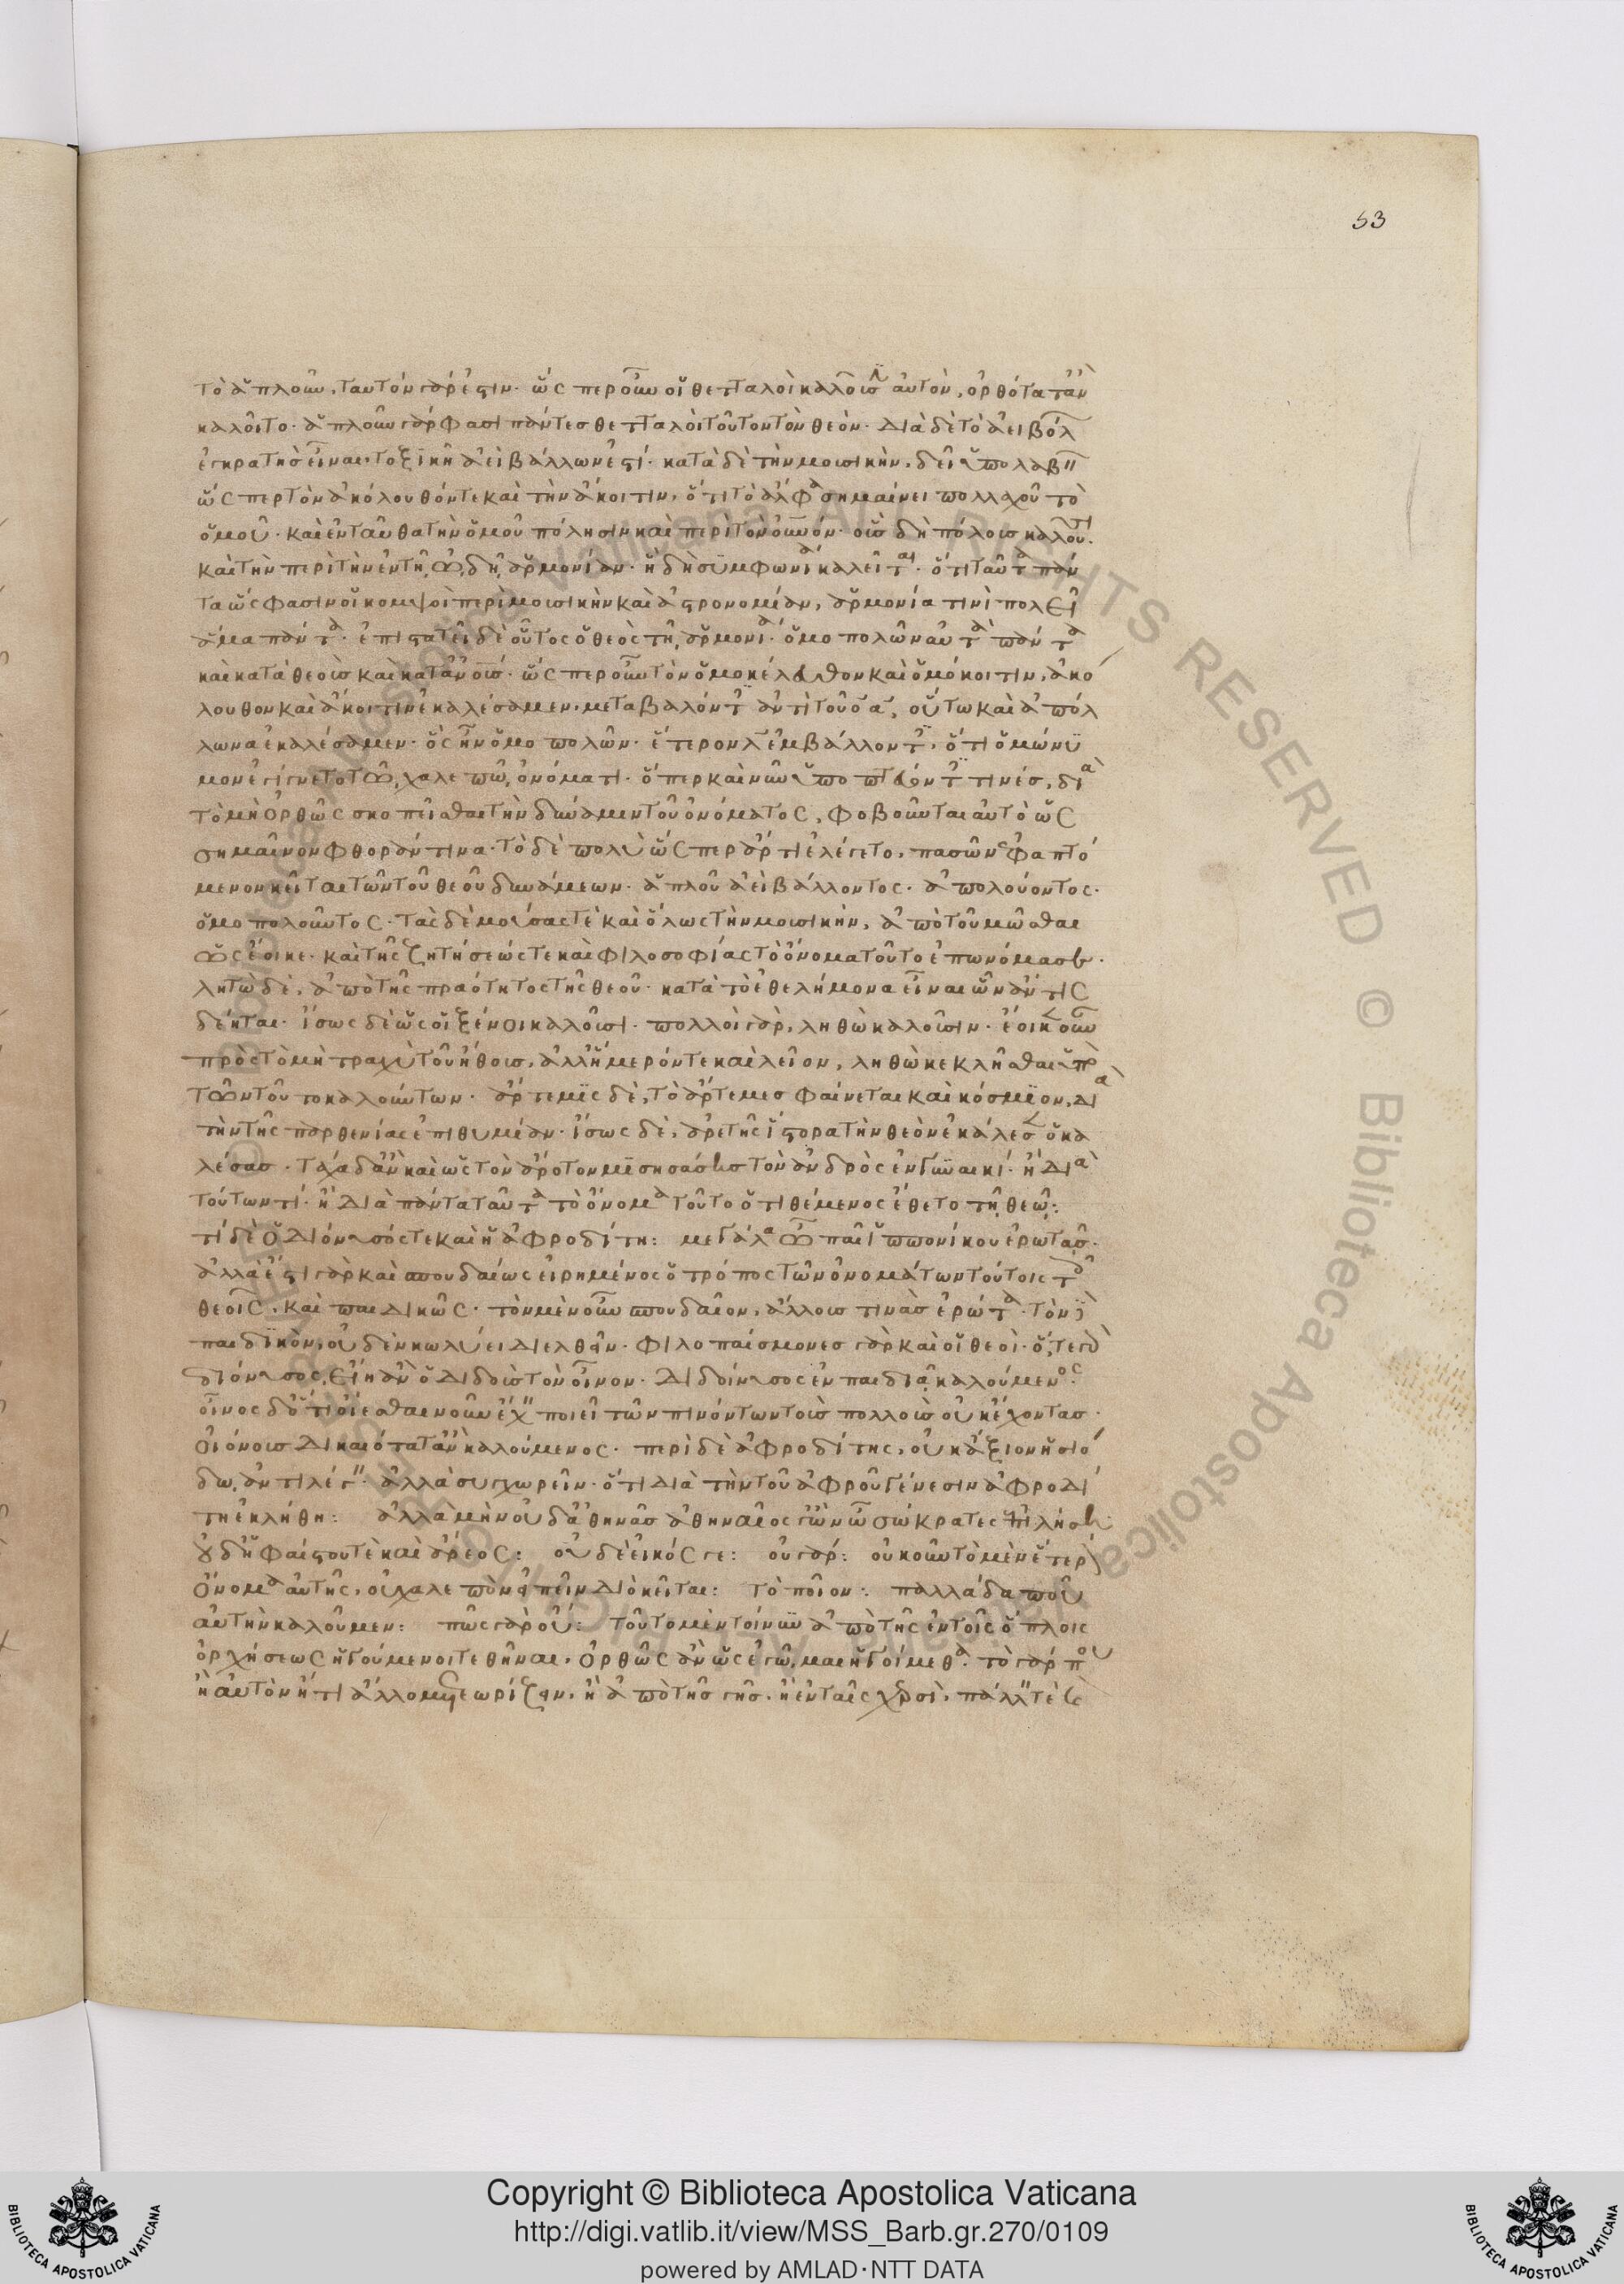 53
τὸ ἁπλοῦν, ταυτόν γάρ ἐστιν· ὥσπερ οὖν οἱ θετταλοὶ καλοῦσιν αὐτὸν, ὀρθότατ' ἂν
καλοῖτο· ἁπλοῦν γάρ φασι πάντες θετταλοὶ τοῦτον τὸν θεόν· διὰ δὲ τὸ ἀεὶ βολῶν
ἐγκρατὴς εἶναι τοξικῆ ἀεὶ βάλλων ἐστί· κατὰ δὲ τὴν μουσικὴν, δεῖ ὑπολαβεῖν
ὥσπερ τὸν ἀκόλουθόν τε καὶ τὴν ἄκοιτιν, ὅτι τὸ ἄλφα σημαίνει πολλαχοῦ τὸ
ὁμοῦ· καὶ ἐνταῦθα τὴν ὁμοῦ πόλησιν καὶ περὶ τὸν οὐρανόν· οὓς δὴ πόλους καλοῦσι·
καὶ τὴν περὶ τὴν ἐν τῇ ᾠδῇ ἁρμονίαν· ἣ δὴ συμφωνία καλεῖται· ὅτι ταῦτα πάν
τα ὥς φασιν οἱ κομψοὶ περὶ μουσικὴν καὶ ἀστρονομίαν, ἁρμονία τινὶ πολεῖ
ἅμα πάντα· ἐπιστατεῖ δὲ οὗτος ὁ θεὸς τῇ ἁρμονίᾳ ὁμοπολῶν αὐτὰ πάντα
καὶ κατὰ θεοὺς καὶ κατ' ἀνθρώπους· ὥσπερ οὖν τὸν ὁμοκέλευθον καὶ ὁμόκοιτιν, ἀκό
λουθον καὶ ἄκοιτιν ἐκαλέσαμεν, μεταβαλόντες ἀντὶ τοῦ ὁ ἀ, οὕτω καὶ ἀπόλ
λωνα ἐκαλέσαμεν· ὃς ἦν ὁμοπολῶν· ἕτερον λ ἐμβάλλοντες, ὅτι ὁμώνυ
μον ἐγίγνετο τῷ χαλεπῷ ὀνόματι· ὅπερ καὶ νῦν ὑποπτεύοντές τινες, διὰ
τὸ μὴ ὀρθῶς σκοπεῖσθαι τὴν δύναμιν τοῦ ὀνόματος, φοβοῦνται αὐτὸ ὡς
σημαῖνον φθοράν τινα· τὸ δὲ πολὺ ὥσπερ ἄρτι ἐλέγετο, πασῶν ἐφαπτό
μενον κεῖται τῶν τοῦ θεοῦ δυνάμεων· ἁπλοῦ ἀεὶ βάλλοντος· ἀπολούοντος·
ὁμοπολοῦντος· τὰς δὲ μούσας τὲ καὶ ὅλως τὴν μουσικὴν, ἀπὸ τοῦ μῶσθαι
ὡς ἔοικε· καὶ τῆς ζητήσεώς τε καὶ φιλοσοφίας τὸ ὄνομα τοῦτο ἐπωνόμασεν·
λητὼ δὲ, ἀπὸ τῆς πραότητος τῆς θεοῦ· κατὰ τὸ ἐθελήμονα εἶναι ὧν ἄν τις
δέηται· ἴσως δὲ ὡς οἱ ξένοι καλοῦσι· πολλοὶ γάρ, ληθὼ καλοῦσιν· ἔοικεν οὖν
πρὸς τὸ μὴ τραχὺ τοῦ ἤθους, ἀλλ' ἥμερόν τε καὶ λεῖον, ληθὼ κεκλῆσθαι ὑπὸ
τῶν τοῦτο καλούντων· ἄρτεμις δὲ, τὸ ἀρτεμὲς φαίνεται καὶ κόσμιον, διὰ
τὴν τῆς παρθενίας ἐπιθυμίαν· ἴσως δὲ, ἀρετῆς ἵστορα τὴν θεὸν ἐκάλεσεν ὁ κα
λέσας· τάχα δ' ἂν καὶ ὡς τὸν ἄροτον μισησάσης τὸν ἀνδρὸς ἐν γυναικί· ἢ διὰ
τούτων τί· ἢ διὰ πάντα ταῦτα τὸ ὄνομα τοῦτο ὁ τιθέμενος ἔθετο τῇ θεῷ:
τί δὲ ὁ διόνυσός τε καὶ ἡ ἀφροδίτη: μεγάλα ὦ παῖ ἱππονίκου ἐρωτᾷς·
ἀλλὰ ἔστι γὰρ καὶ σπουδαίως εἰρημένος ὁ τρόπος τῶν ὀνομάτων τούτοις τοῖς
θεοῖς, καὶ παιδικῶς· τὸν μὲν οὖν σπουδαῖον, ἄλλους τινὰς ἐρώτα· τὸν δὲ
παιδικὸν, οὐδὲν κωλύει διελθεῖν· φιλοπαίσμονες γὰρ καὶ οἱ θεοί· ὅ, τε γὰρ
διόνυσος, εἴη ἂν ὁ διδοὺς τὸν οἶνον· διδοίνυσος ἐν παιδιᾷ καλούμενος·
οἶνος δ' ὅτι οἴεσθαι νοῦν ἔχειν ποιεῖ τῶν πινόντων τοὺς πολλοὺς οὐκ ἔχοντας·
οἰόνους δικαιότατ' ἂν καλούμενος· περὶ δὲ ἀφροδίτης, οὐκ ἄξιον ἡσιό
δῳ ἀντιλέγειν· ἀλλὰ συγχωρεῖν· ὅτι διὰ τὴν τοῦ ἀφροῦ γένεσιν ἀφροδί
τη ἐκλήθη: ἀλλὰ μὴν οὐδ' ἀθηνᾶς ἀθηναῖός γ' ὢν ὦ σώκρατες ἐπιλήσῃ·
οὐδ' ἡφαίστου τὲ καὶ ἄρεος: οὐδὲ εἰκός γε: οὐ γάρ: οὐκοῦν τὸ μὲν ἕτερον
ὄνομα αὐτῆς, οὐ χαλεπὸν εἰπεῖν διὸ κεῖται: τὸ ποῖον: παλλάδα που
αὐτὴν καλοῦμεν: πῶς γὰρ οὔ: τοῦτο μὲν τοίνυν ἀπὸ τῆς ἐν τοῖς ὅπλοις
ὀρχήσεως ἡγούμενοι τεθῆναι, ὀρθῶς ἂν ὡς ἐγᾦμαι ἡγοίμεθα· τὸ γάρ που
ἢ αὑτὸν ἤ τι ἄλλο μετεωρίζειν, ἢ ἀπὸ τῆς γῆς, ἢ ἐν ταῖς χερσὶ, πάλλειν τὲ καὶ